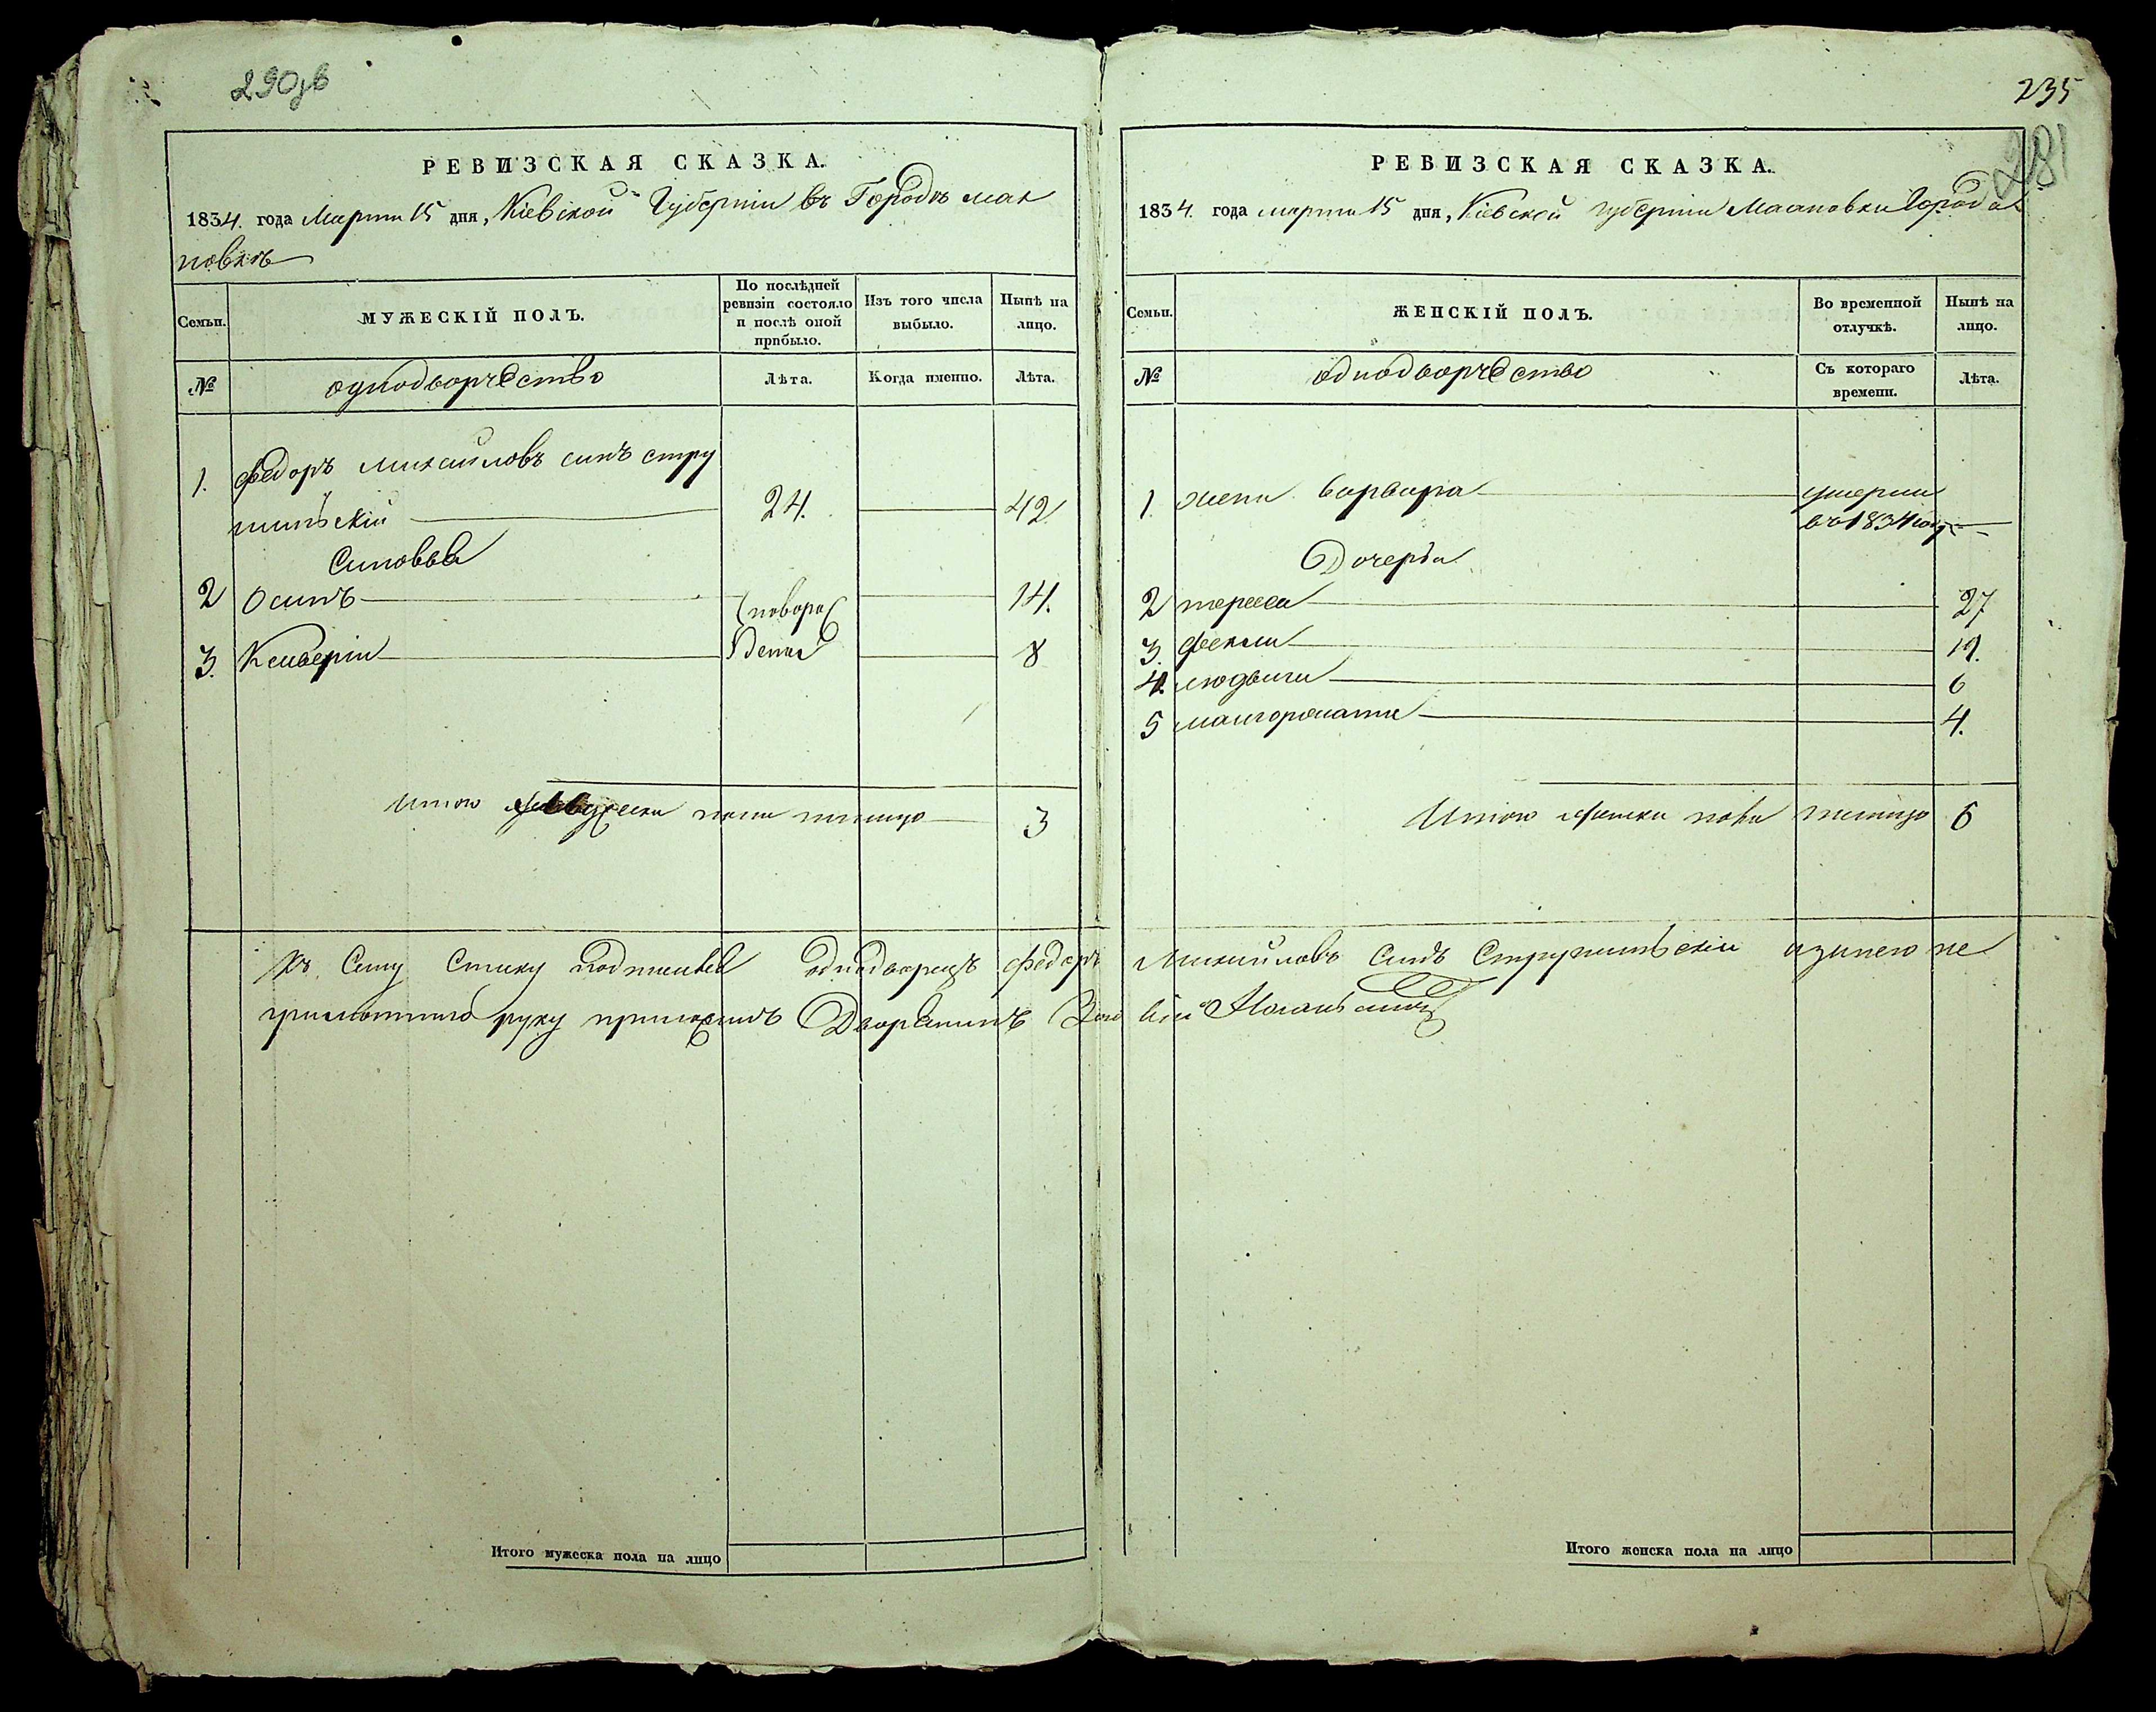 290зв
РЕВИЗСКАЯ СКАЗКА.
1834. года Марта 15 дня, Кіевской Губерніи въ Городѣ мак
новкѣ
Семьи.
МУЖЕСКІЙ ПОЛЪ.
По послѣдней ревизіи состояло и послѣ оной прибыло.
Изъ того числа выбыло.
Нынѣ на лицо.
№
однодворчество
Лѣта.
Когда именно.
Лѣта.
1. Федоръ Михайловъ синъ стру
шинѣскій 24. 42
Синовья
2 Осипъ 14.
(новоро
3. Ксаверій 8
денны
Итого мужеска пола налицо 3
Къ Сему Списку
однодворецъ Федоръ Михайловъ Синъ
а занего не
грамотнаго руку приложилъ Дворянинъ
Итого мужеска пола на лицо
235
281
РЕВИЗСКАЯ СКАЗКА.
1834. года марта 15 дня, Кіевской губерніи Махновки города
Семьи.
ЖЕНСКІЙ ПОЛЪ.
Во временной отлучкѣ.
Нынѣ на лицо.
№
однодворчество
Съ котораго времени.
Лѣта.
1. жена варвара умерла
въ 1834 году
Дочерьи
2 тереса 27
3. фекла 19.
4. людвига 6
5 малгоржата 4.
Итого женска пола налицо 6
Итого женска пола на лицо